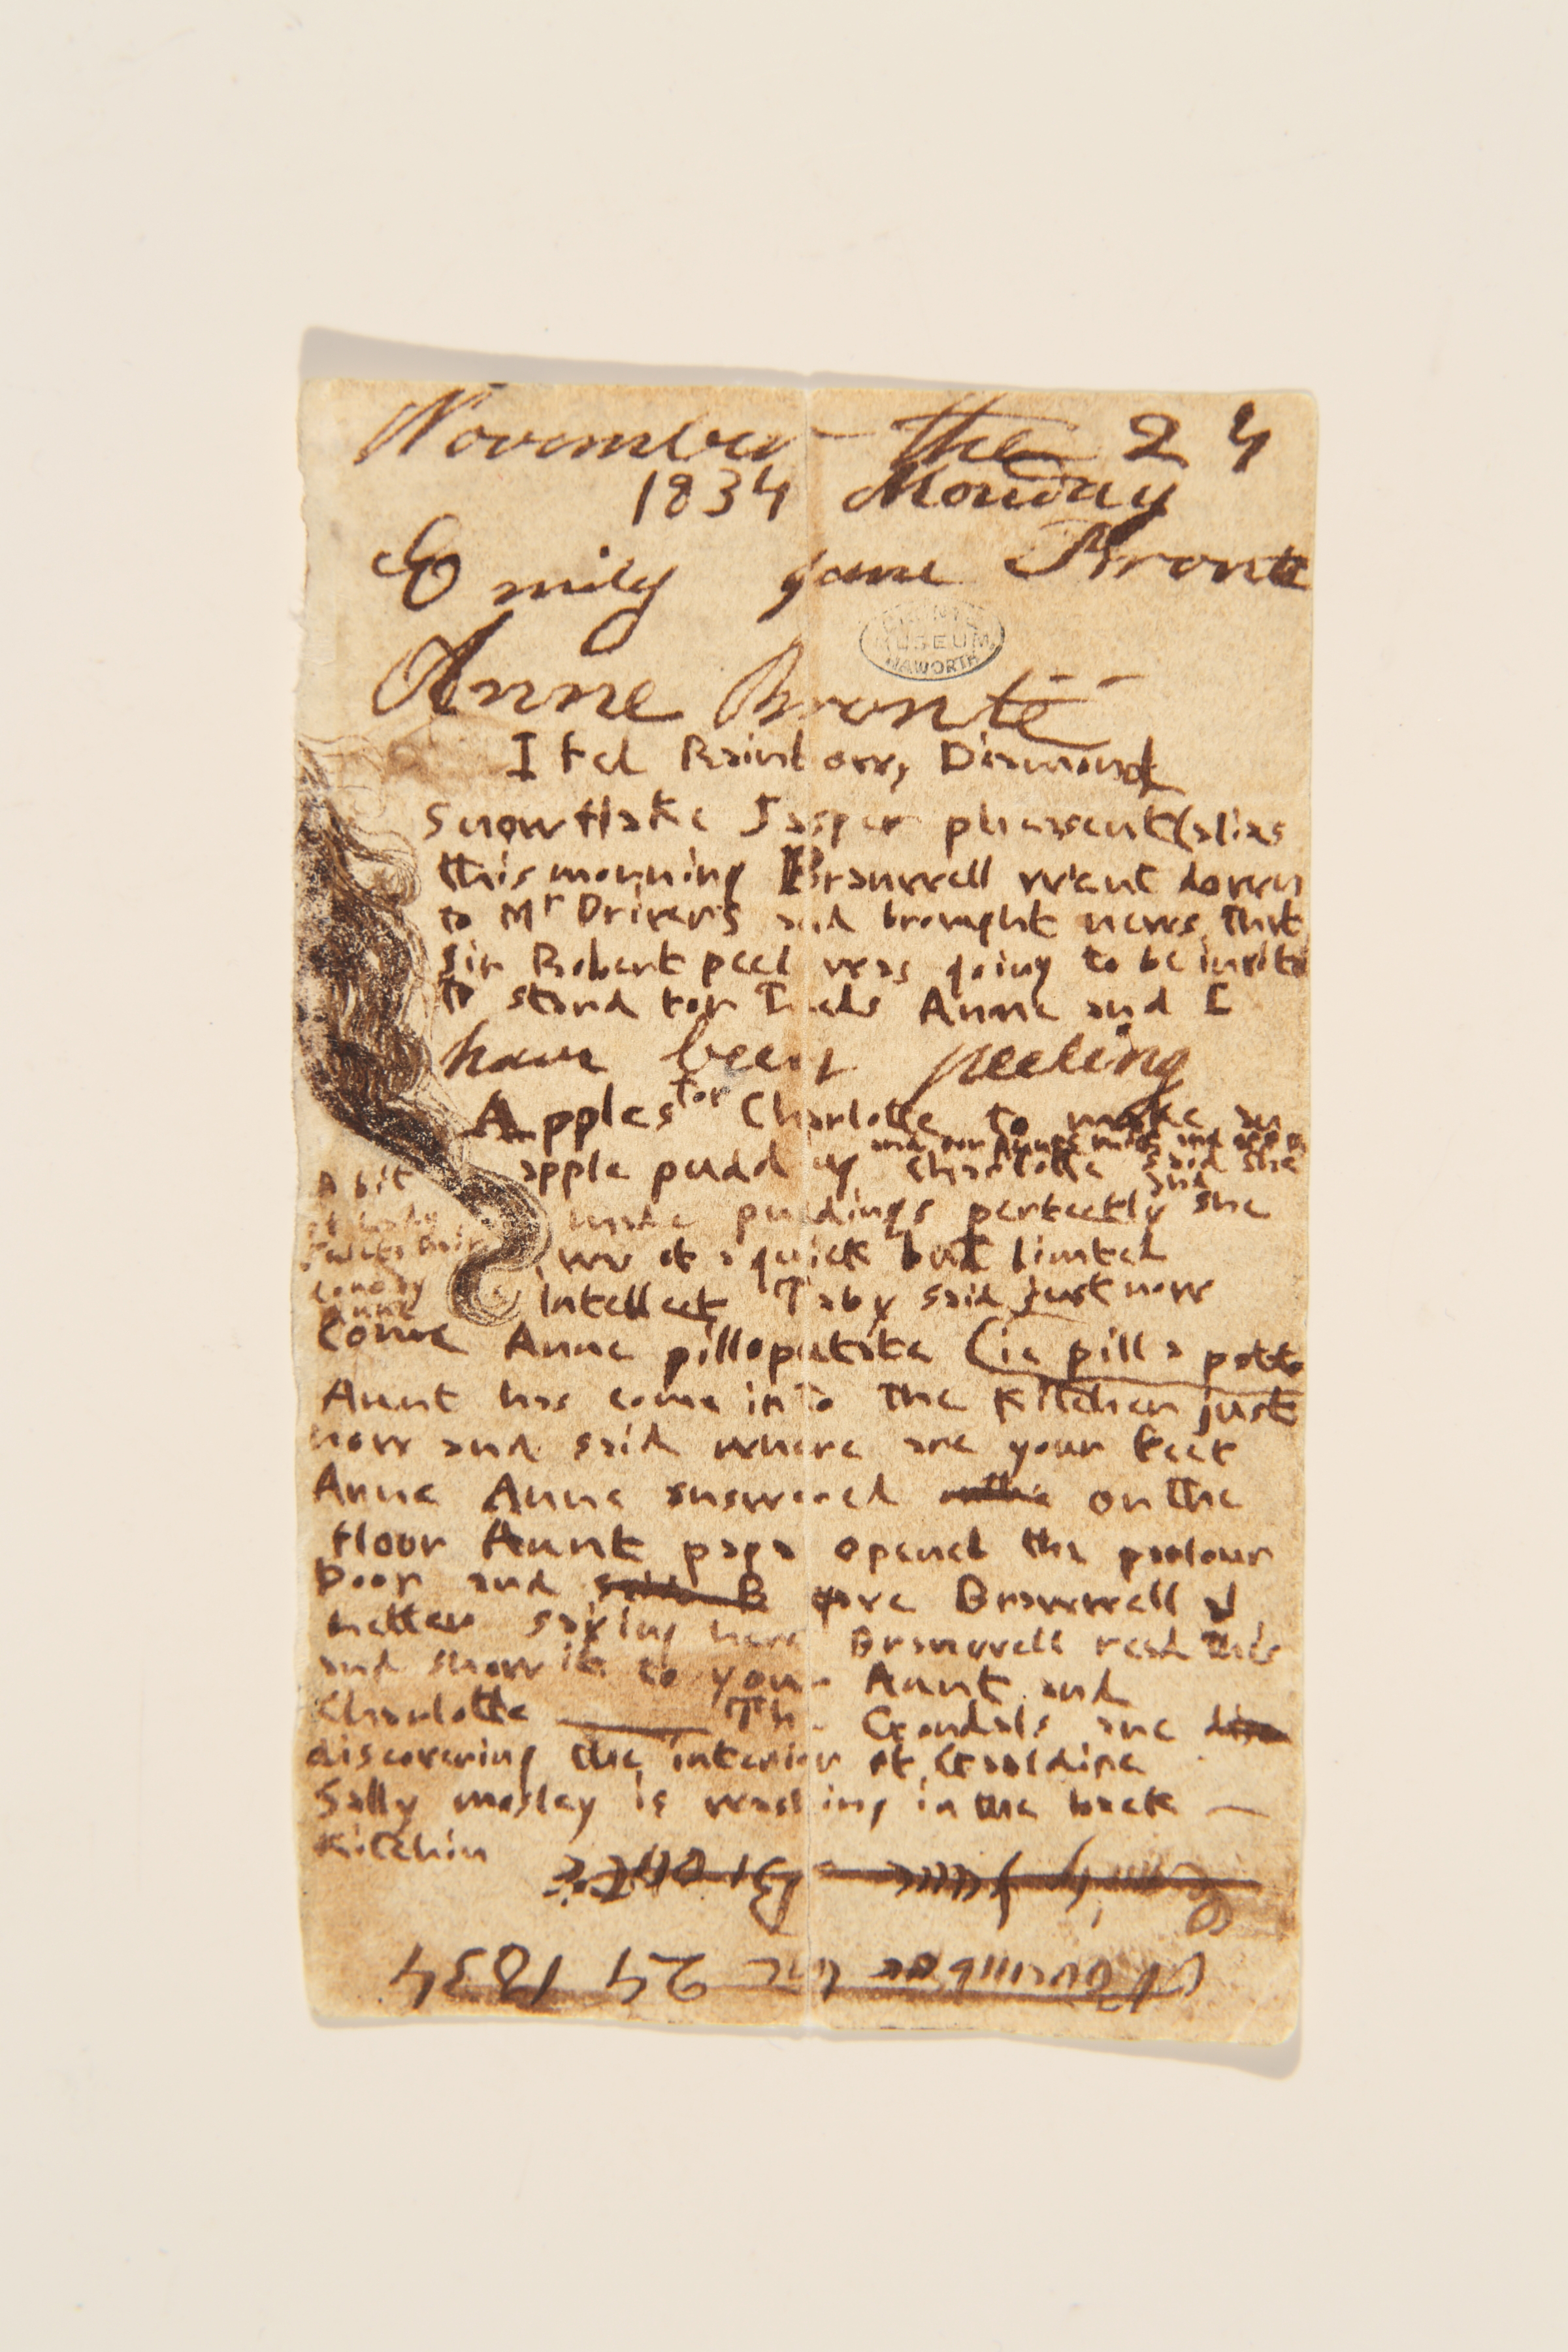 November the 24
1834 Monday
Emily Jane Brontë
Anne Brontë
BRONTË
MUSEUM
HAWORTH
I fed Rainbow, Diamond
Snowflake Jasper pheasent (alias
this morning Branwell went down
to Mr Drivers and brought news that
Sir Robert peel was going to be invited
to stand for Leeds Anne and I
have been peeling
Apples for Charlotte to make an
apple pudding and for Aunts
Charlotte said she
made puddings perfectly and she
was of a quick but limted
Intellect Taby said just now
A bit
of Lady
Juliets hair
done by
Anne
Come Anne pillopatate (ie pill a potato
Aunt has come into the Kitchen just
now and said where are your feet
Anne Anne answered on the
floor Aunt papa opened the parlour
Door and said B gave Branwell a
Letter saying here Branwell read this
and show it to your Aunt and
Charlotte — The Gondals are dis
discovering the interior of Gaaldine
Sally mosley is washing in the back —
Kitchin
Emily Jane Brontë
November the 24 1834